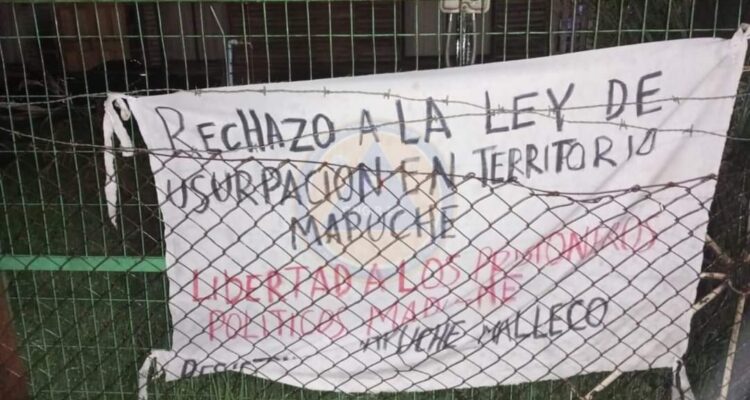 RECHAZO A LA LEY DE
USURPACION EN TERRITORIO
MAPUCHE
LIBERTAD A LOS PRISIONEROS
POLITICOS MAPUCHE
MAPUCHE MALLECO